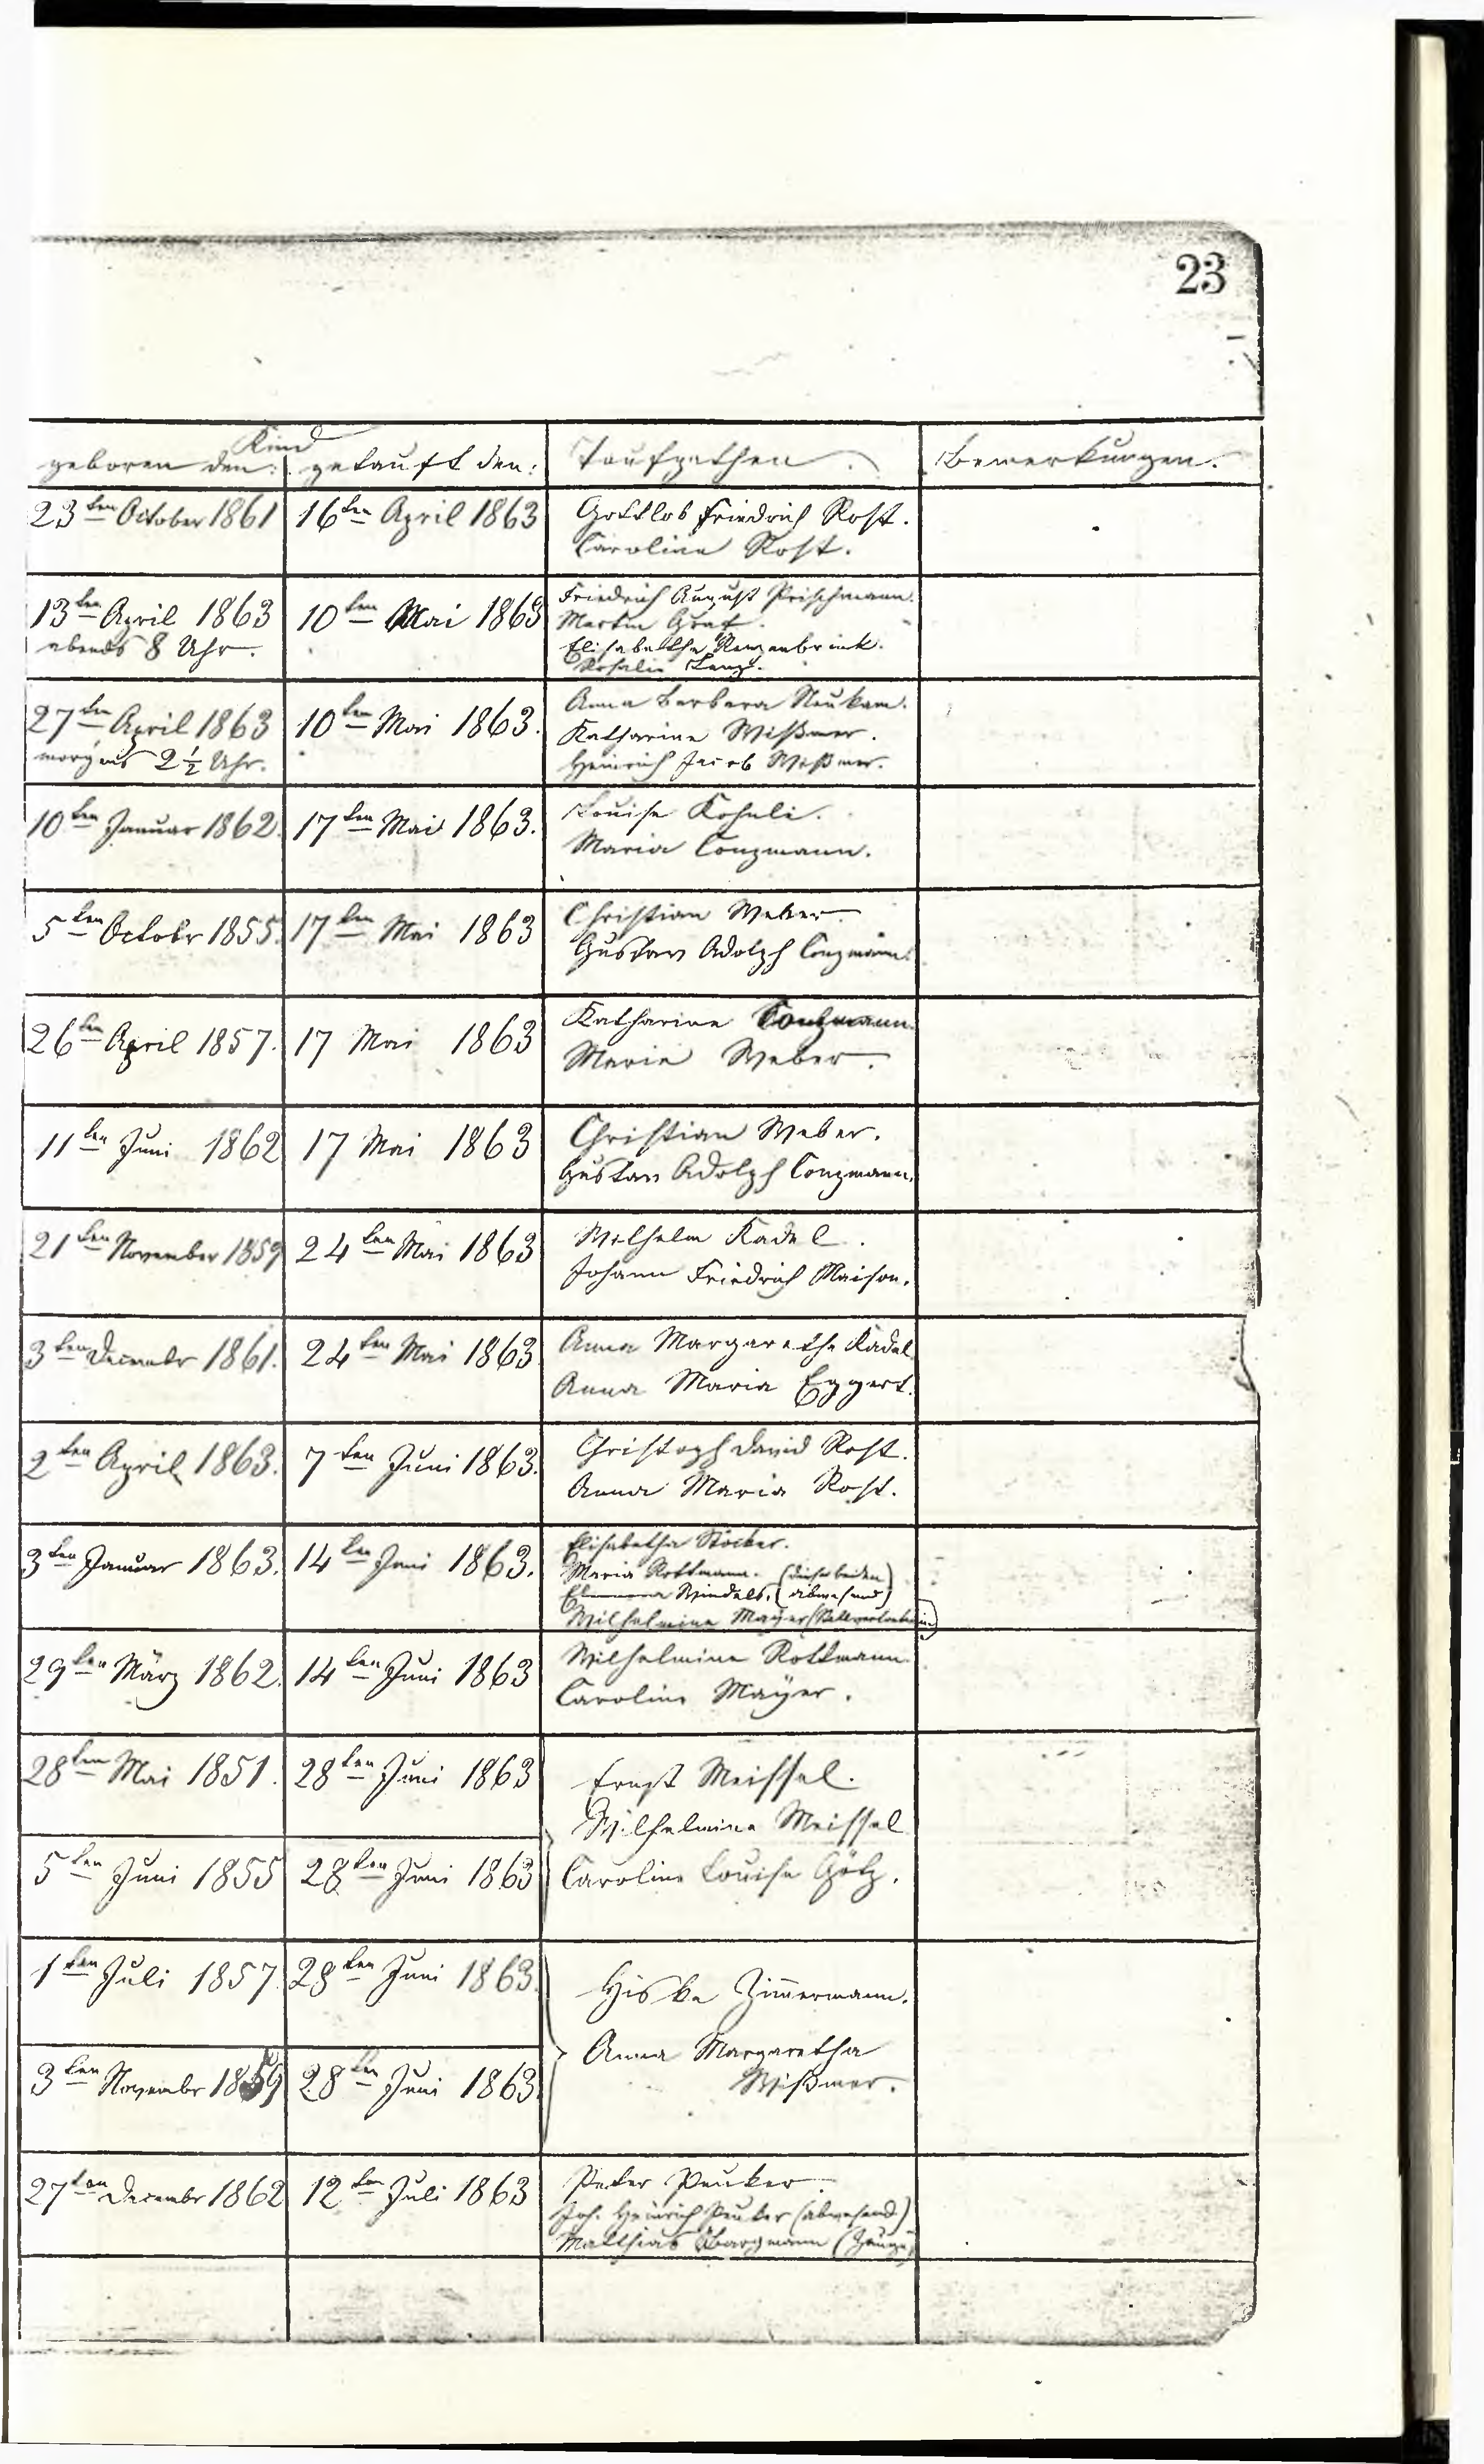 23
Kind
geboren den: getauft den: Taufpathen. Bemerkungen.
23ten October 1861 16ten April 1863 Gottlob Friedrich Rost.
Caroline Rost.
13ten April 1863 10ten Mai 1863 Friedrich August Frischmann.
abends 8 Uhr. Martin Graf.
Elisabetha
Rosalie Lenz.
27ten April 1863 10ten Mai 1863. Anna Barbara Neukam.
morgens 2½ Uhr. Katharine Wißmer.
Heinrich Jacob Wißmer.
10ten Januar 1862. 17ten Mai 1863. Louise Kohnli.
Maria Conzmann.
5ten Octobr 1855. 17ten Mai 1863 Christian Weber.
Gustav Adolph Conzmann.
26ten April 1857. 17 Mai 1863 Katharine Conzmann
Maria Weber.
11ten Juni 1862 17 Mai 1863 Christian Weber.
Gustav Adolph Conzmann.
21ten November 1859 24ten Mai 1863 Wilhelm Kadel.
Johann Friedrich Maison.
3ten Decembr 1861. 24ten Mai 1863 Anna Margarethe Kadel
Anna Maria Eggert.
2ten April 1863. 7ten Juni 1863. Christoph David Rost.
Anna Maria Rost.
3ten Januar 1863. 14ten Juni 1863. Elisabetha Stöcker.
Maria Rottmann. (diese beiden
Windels, abwesend)
Wilhelmine Mayer (Stellvertreterin)
29ten März 1862. 14ten Juni 1863 Wilhelmine Rottmann.
Caroline Mayer.
28ten Mai 1851. 28ten Juni 1863 Ernst Meissel.
Wilhelmine Meissel
5ten Juni 1855 28ten Juni 1863 Caroline Louise Götz.
1ten Juli 1857 28ten Juni 1863. Hiske Zimmermann.
Anna Margaretha
3ten Novembr 1859 28ten Juni 1863. Wißmer.
27ten Decembr 1862 12ten Juli 1863 Peter Peuker.
Joh. Heinrich Peuker (abwesend)
Matthias Bargmann (Zeuge)